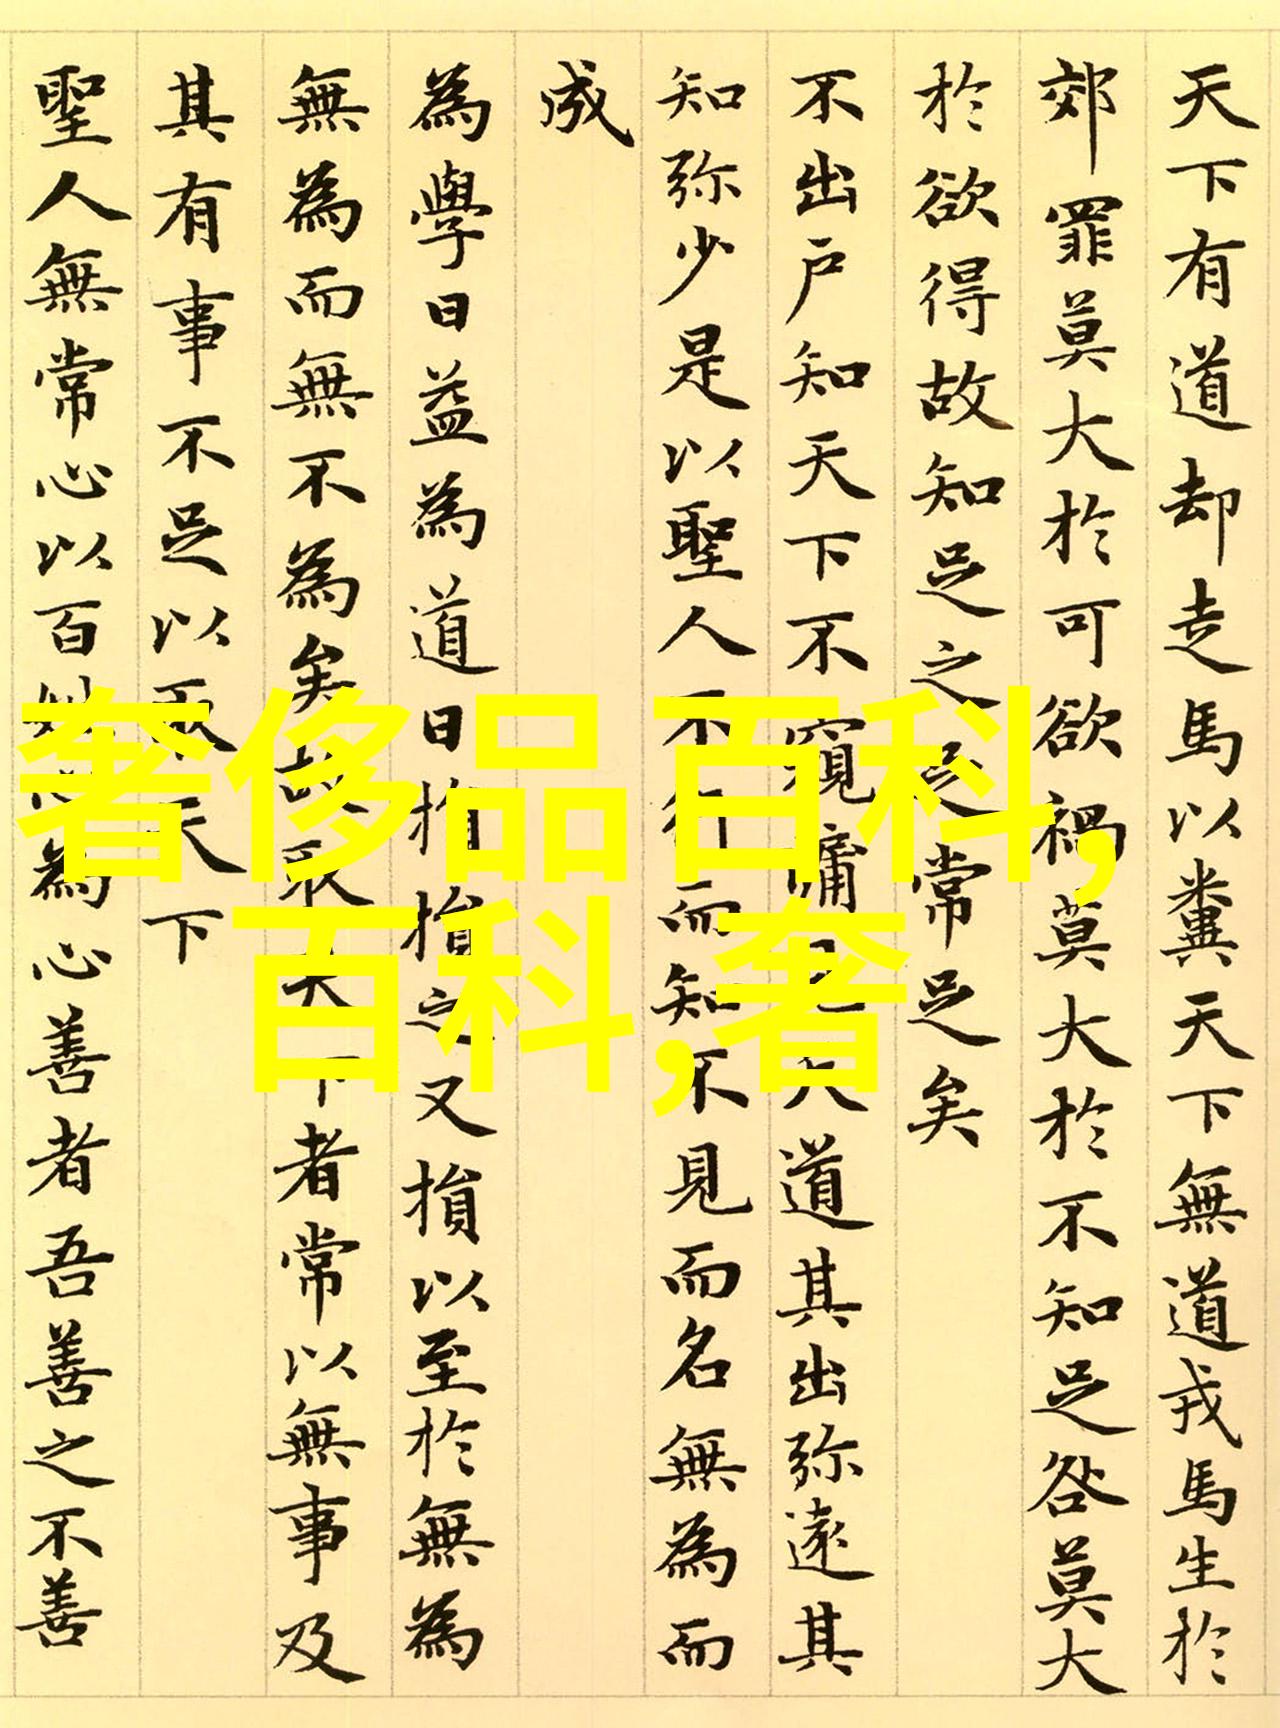 天下有道却走馬以糞天下無道戎馬生於
郊罪莫大於可欲禍莫大於不知足咎莫大
於欲得故知足之足常足矣
不出戶知天下不窺牖見大道其出弥遠其
知弥少是以聖人不行而知不見而名無為而
成
為學日益為道日損損之又損以至於無為
無為而無不為矣故取天下者常以無事及
其有事不足以取天下
聖人無常心以百姓心為心善者吾善之不善
奢侈品百科,
百科,奢